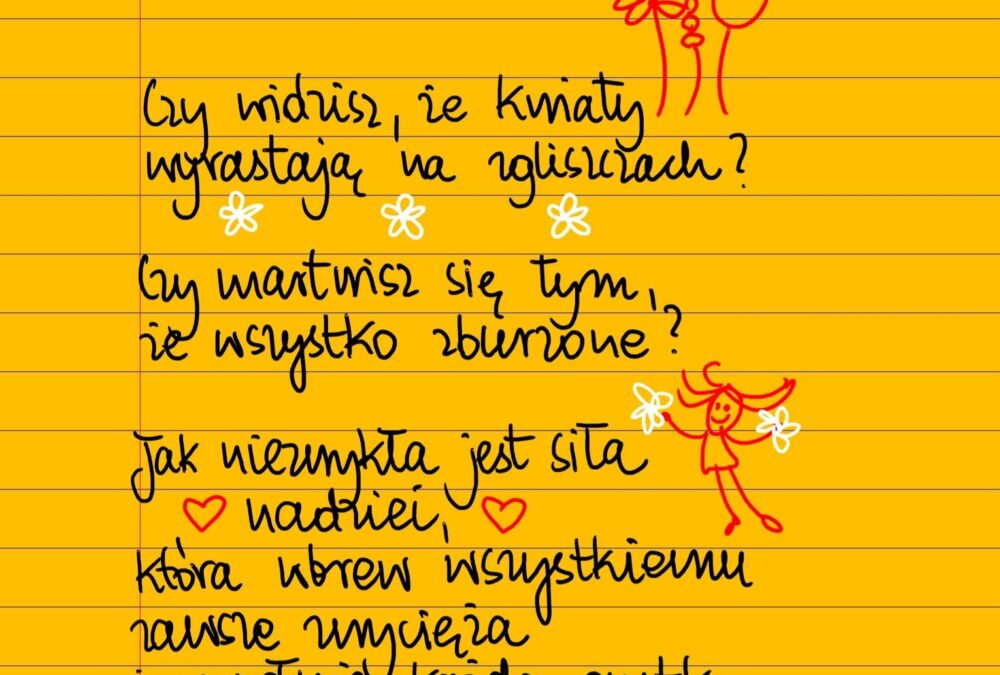 Czy widzisz, że kwiaty
wyrastają na zgliszczach?
Czy martwisz się tym,
że wszystko zburzone?
Jak niezwykła jest siła
nadziei,
która wbrew wszystkiemu
zawsze zwycięża